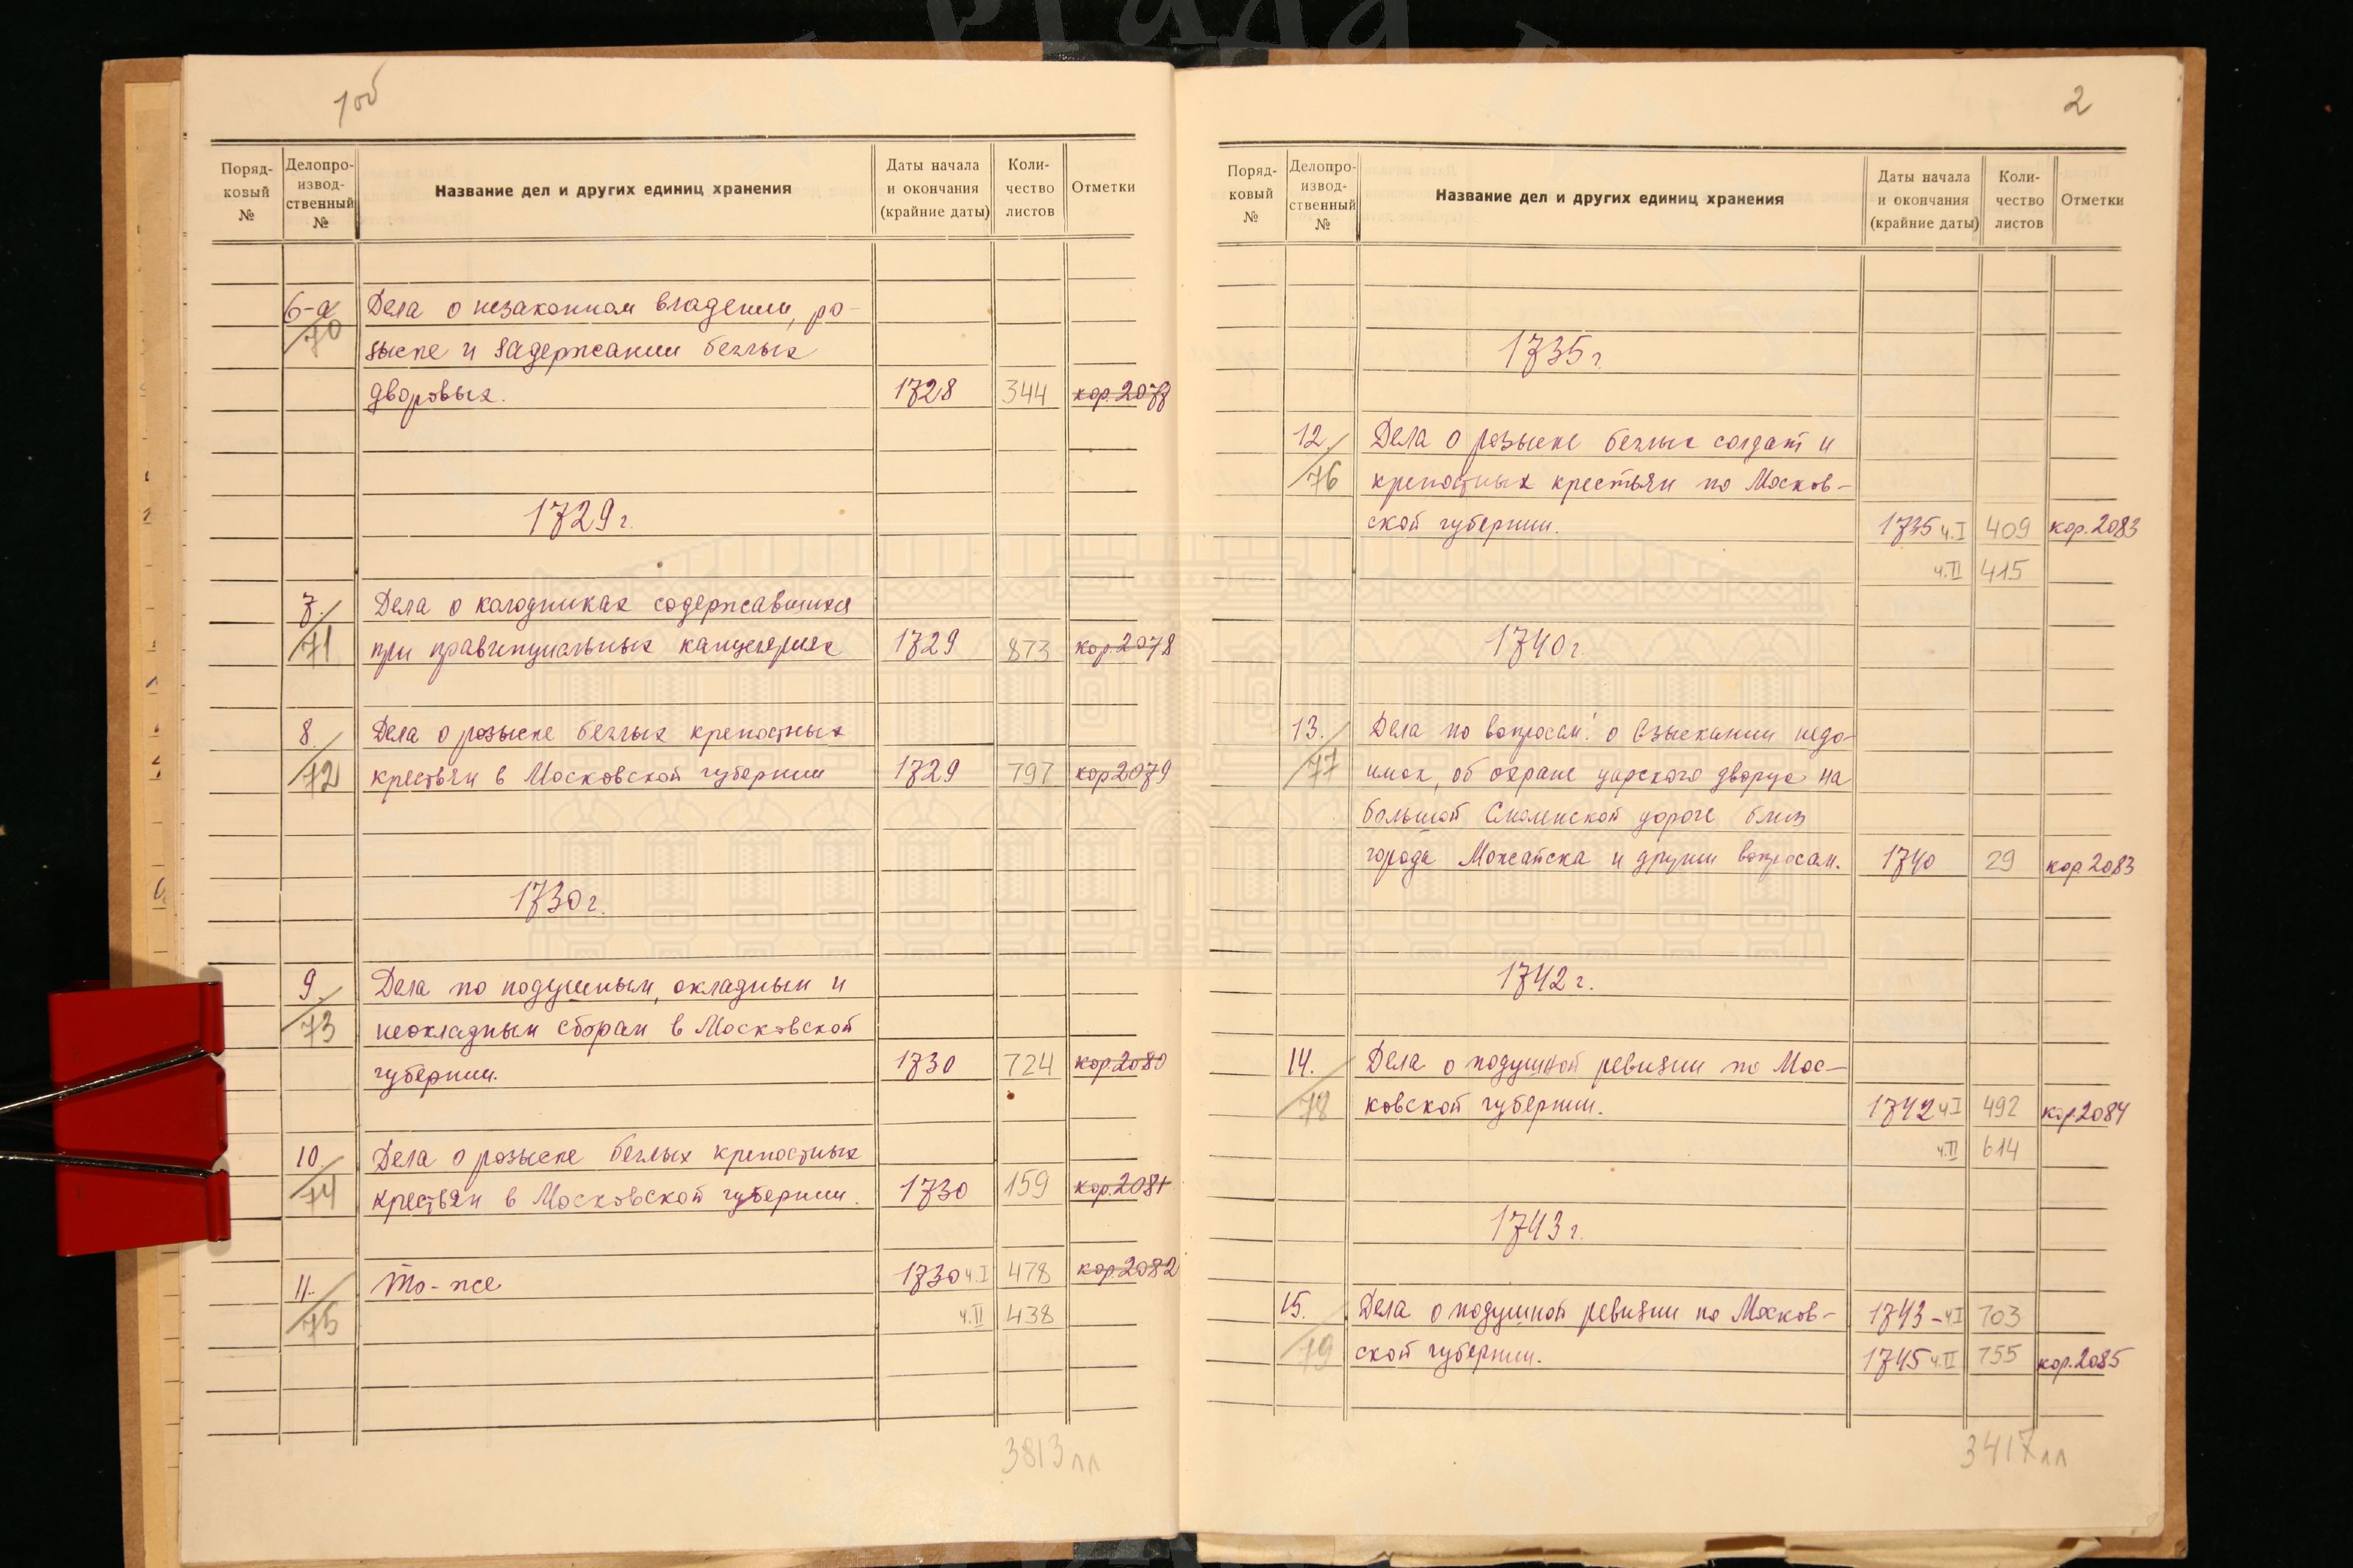 1 об
Поряд-
ковый
№
Делопро-
извод-
ственный
№
Название дел и других единиц хранения
Даты начала
и окончания
(крайние даты)
Коли-
чество
листов
Отметки
6-а
70
Дела о незаконном владении, ро-
зыске и задержании беглых
дворовых. 1728 344 кор. 2077
1729 г.
7.
71
Дела о колодниках содержавшихся
при правинциальных канцеляриях 1729 873 кор. 2078
8.
72
Дела о розыске беглых крепостных
крестьян в Московской губернии 1729 797 кор 2079
1730 г.
9.
73
Дела по подушным, окладным и
неокладным сборам в Московской
губернии. 1730 724 кор 2080
10.
74
Дела о розыске беглых крепостных
крестьян в Московской губернии. 1730 159 кор. 2081
11.
75
То-же 1730 ч. I 478 кор 2082
ч. II 438
3813 лл
2
Поряд-
ковый
№
Делопро-
извод-
ственный
№
Название дел и других единиц хранения
Даты начала
и окончания
(крайние даты)
Коли-
чество
листов
Отметки
1735 г.
12.
76
Дела о розыске беглых солдат и
крепостных крестьян по Москов-
ской губернии. 1735 ч. I 409 кор. 2083
ч. II 415
1740 г.
13.
77
Дела по вопросам: о взыскании недо-
имок, об охране царского дворца на
большой Смоленской дороге близ
города Можайска и другим вопросам. 1740 29 кор. 2083
1742 г.
14.
78
Дела о подушной ревизии по Мос-
ковской губернии. 1742 ч I 492 кор 2084
ч. II 614
1743 г.
15.
79
Дела о подушной ревизии по Москов- 1743- ч I 703
ской губернии. 1745 ч. II 755 кор. 2085
3417 лл